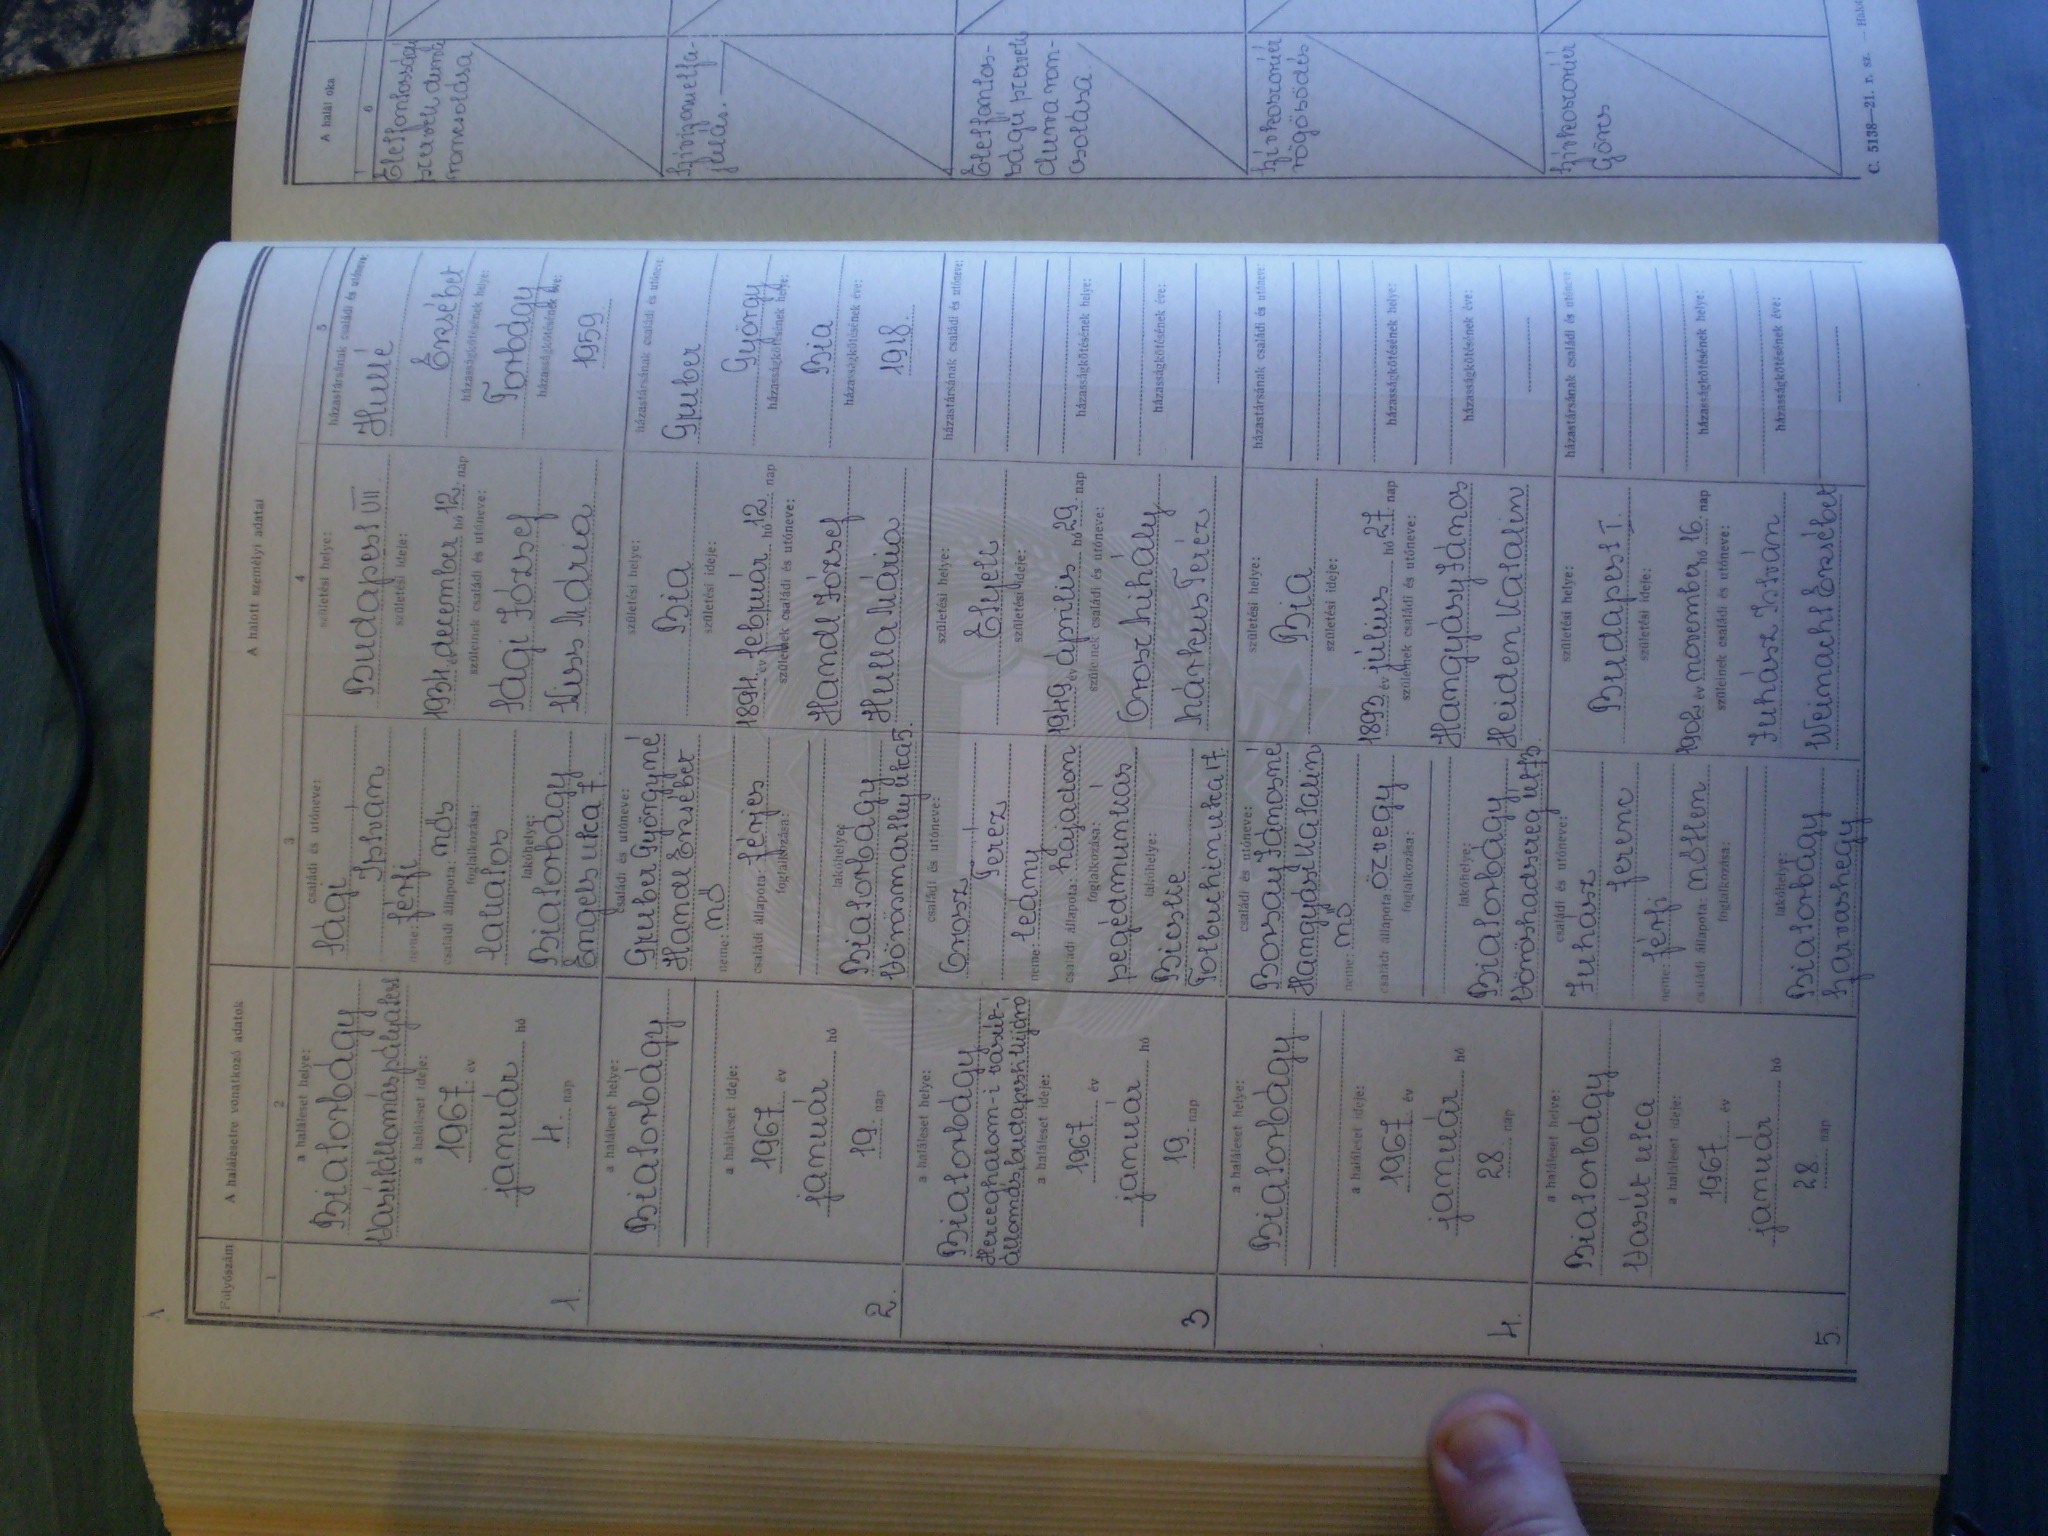 1
Folyószám
A halálesetre vonatkozó adatok
A halott személyi adatai
A halál oka
1
2
3
4
5
6
1.
a haláleset helye:
Biatorbágy
Vasútállomás pályatest
a haláleset ideje:
1967. év
január hó
4. nap
családi és utóneve:
Sági
István
neme: férfi
családi állapota: nős
foglalkozása:
lakatos
lakóhelye:
Biatorbágy
Engels utca 7.
születési helye:
Budapest VII.
születési ideje:
1934. év december hó 12. nap
szüleinek családi és utóneve:
Sági József
Kiss Mária
házastársának családi és utóneve:
Erzsébet
házasságkötésének helye:
Torbágy
házasságkötésének éve:
1959
Életfontosságú
szervek durva
roncsolása
2.
a haláleset helye:
Biatorbágy
a haláleset ideje:
1967 év
január hó
19. nap
családi és utóneve:
Gruber Györgyné
Handl Erzsébet
neme: nő
családi állapota: férjes
foglalkozása:
lakóhelye:
Biatorbágy
Vörösmarthy utca 5.
születési helye:
Bia
születési ideje:
1894. év február hó 12. nap
szüleinek családi és utóneve:
Handl József
Hulla Mária
házastársának családi és utóneve:
Gruber
György
házasságkötésének helye:
Bia
házasságkötésének éve:
1918.
Szívizomelfa-
julás.
3
a haláleset helye:
Biatorbágy
Herceghalom-i vasút-
állomás, budapesti
a haláleset ideje:
1967 év
január hó
19. nap
családi és utóneve:
Orosz
Teréz
neme: leány
családi állapota: hajadon
foglalkozása:
segédmunkás
lakóhelye:
Bicske
Tolbuchin utca 17.
születési helye:
Etyek
születési ideje:
1949 év április hó 29. nap
szüleinek családi és utóneve:
Orosz Mihály
Márkus Teréz
házastársának családi és utóneve:
házasságkötésének helye:
házasságkötésének éve:
Életfontos-
ságú szervek
durva ron-
csolása.
4.
a haláleset helye:
Biatorbágy
a haláleset ideje:
1967 év
január hó
28 nap
családi és utóneve:
Jánosné
Hangyási Katalin
neme: nő
családi állapota: özvegy
foglalkozása:
lakóhelye:
Biatorbágy
Vöröshadsereg
születési helye:
Bia
születési ideje:
1893 év július hó 27. nap
szüleinek családi és utóneve:
Hangyási János
Heiden Katalin
házastársának családi és utóneve:
házasságkötésének helye:
házasságkötésének éve:
Szívkoszorúér
rögösödés
5.
a haláleset helye:
Biatorbágy
Vasút utca
a haláleset ideje:
1967 év
január hó
28. nap
családi és utóneve:
Juhász
Ferenc
neme: férfi
családi állapota: nőtlen
foglalkozása:
lakóhelye:
Biatorbágy
Szarvashegy
születési helye:
Budapest I.
születési ideje:
1902. év november hó 16. nap
szüleinek családi és utóneve:
Juhász István
Weinacht Erzsébet
házastársának családi és utóneve:
házasságkötésének helye:
házasságkötésének éve:
Szívkoszorúér
Görcs
C. 5138—21. r. sz.